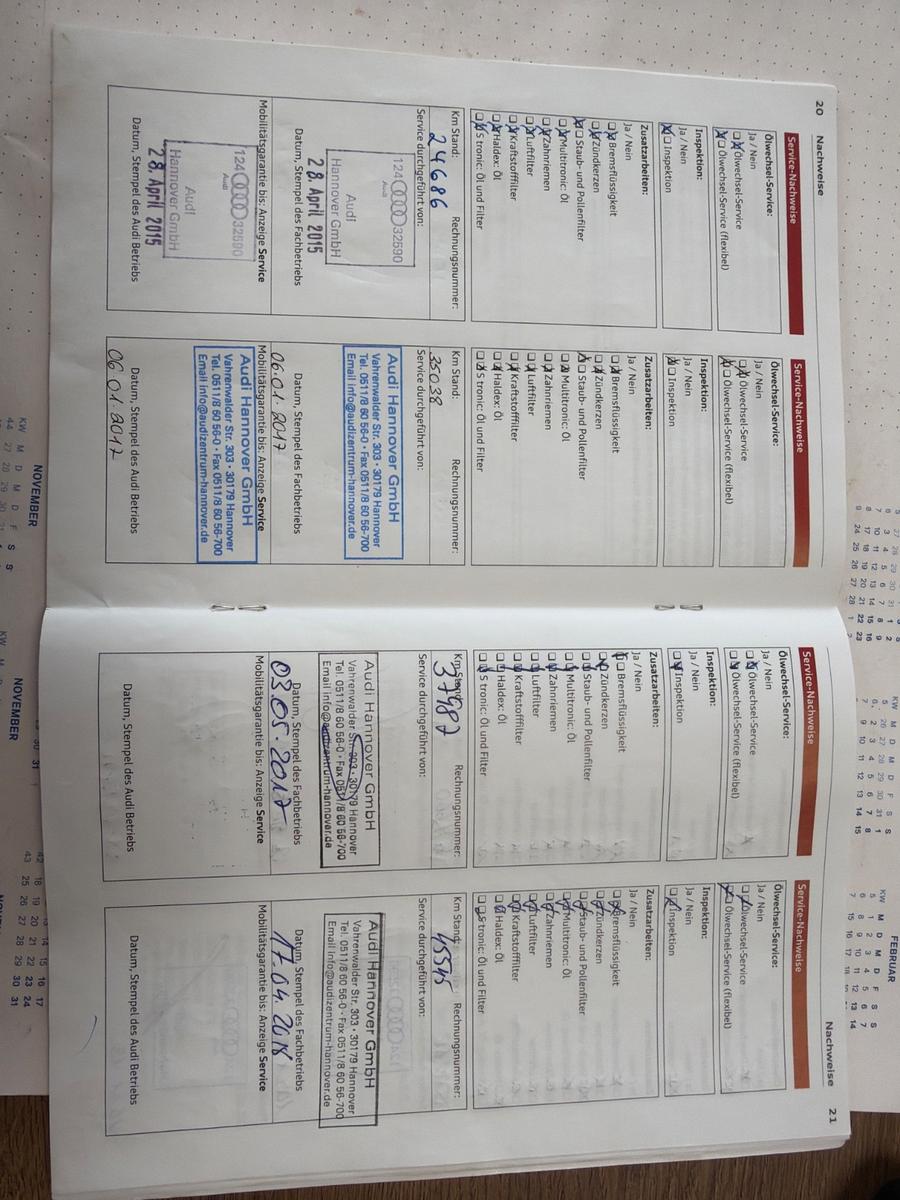 20 Nachweise
Service-Nachweise
Ölwechsel-Service:
Ja / Nein
Ölwechsel-Service
Ölwechsel-Service (flexibel)
Inspektion:
Ja / Nein
Inspektion
Zusatzarbeiten:
Ja / Nein
Bremsflüssigkeit
Zündkerzen
Staub- und Pollenfilter
Multitronic: Öl
Zahnriemen
Luftfilter
Kraftstofffilter
Haldex: Öl
S tronic: Öl und Filter
Km Stand: Rechnungsnummer:
24686
Service durchgeführt von:
124 32590
Audi
Audi
Hannover GmbH
28. April 2015
Datum, Stempel des Fachbetriebs
Mobilitätsgarantie bis: Anzeige Service
124 32590
Audi
Audi
Hannover GmbH
28. April 2015
Datum, Stempel des Audi Betriebs
Service-Nachweise
Ölwechsel-Service:
Ja / Nein
Ölwechsel-Service
Ölwechsel-Service (flexibel)
Inspektion:
Ja / Nein
Inspektion
Zusatzarbeiten:
Ja / Nein
Bremsflüssigkeit
Zündkerzen
Staub- und Pollenfilter
Multitronic: Öl
Zahnriemen
Luftfilter
Kraftstofffilter
Haldex: Öl
S tronic: Öl und Filter
Km Stand: Rechnungsnummer:
35038
Service durchgeführt von:
Audi Hannover GmbH
Vahrenwalder Str. 303 · 30179 Hannover
Tel. 0511/8 60 56-0 · Fax 0511/8 60 56-700
Email info@audizentrum-hannover.de
Datum, Stempel des Fachbetriebs
06.01.2017
Mobilitätsgarantie bis: Anzeige Service
Audi Hannover GmbH
Vahrenwalder Str. 303 · 30179 Hannover
Tel. 0511/8 60 56-0 · Fax 0511/8 60 56-700
Email info@audizentrum-hannover.de
Datum, Stempel des Audi Betriebs
06.01.2017
Nachweise 21
Service-Nachweise
Ölwechsel-Service:
Ja / Nein
Ölwechsel-Service
Ölwechsel-Service (flexibel)
Inspektion:
Ja / Nein
Inspektion
Zusatzarbeiten:
Ja / Nein
Bremsflüssigkeit
Zündkerzen
Staub- und Pollenfilter
Multitronic: Öl
Zahnriemen
Luftfilter
Kraftstofffilter
Haldex: Öl
S tronic: Öl und Filter
Km Stand: Rechnungsnummer:
37987
Service durchgeführt von:
Audi Hannover GmbH
Vahrenwalder Str. 303 · 30179 Hannover
Tel. 0511/8 60 56-0 · Fax 0511/8 60 56-700
Email info@audizentrum-hannover.de
Datum, Stempel des Fachbetriebs
03.05.2017
Mobilitätsgarantie bis: Anzeige Service
Datum, Stempel des Audi Betriebs
Service-Nachweise
Ölwechsel-Service:
Ja / Nein
Ölwechsel-Service
Ölwechsel-Service (flexibel)
Inspektion:
Ja / Nein
Inspektion
Zusatzarbeiten:
Ja / Nein
Bremsflüssigkeit
Zündkerzen
Staub- und Pollenfilter
Multitronic: Öl
Zahnriemen
Luftfilter
Kraftstofffilter
Haldex: Öl
S tronic: Öl und Filter
Km Stand: Rechnungsnummer:
45545
Service durchgeführt von:
Audi Hannover GmbH
Vahrenwalder Str. 303 · 30179 Hannover
Tel. 0511/8 60 56-0 · Fax 0511/8 60 56-700
Email info@audizentrum-hannover.de
Datum, Stempel des Fachbetriebs
17.04.2018
Mobilitätsgarantie bis: Anzeige Service
Datum, Stempel des Audi Betriebs
FEBRUAR
KW M D M D F S S
NOVEMBER
KW M D M D F S S
NOVEMBER